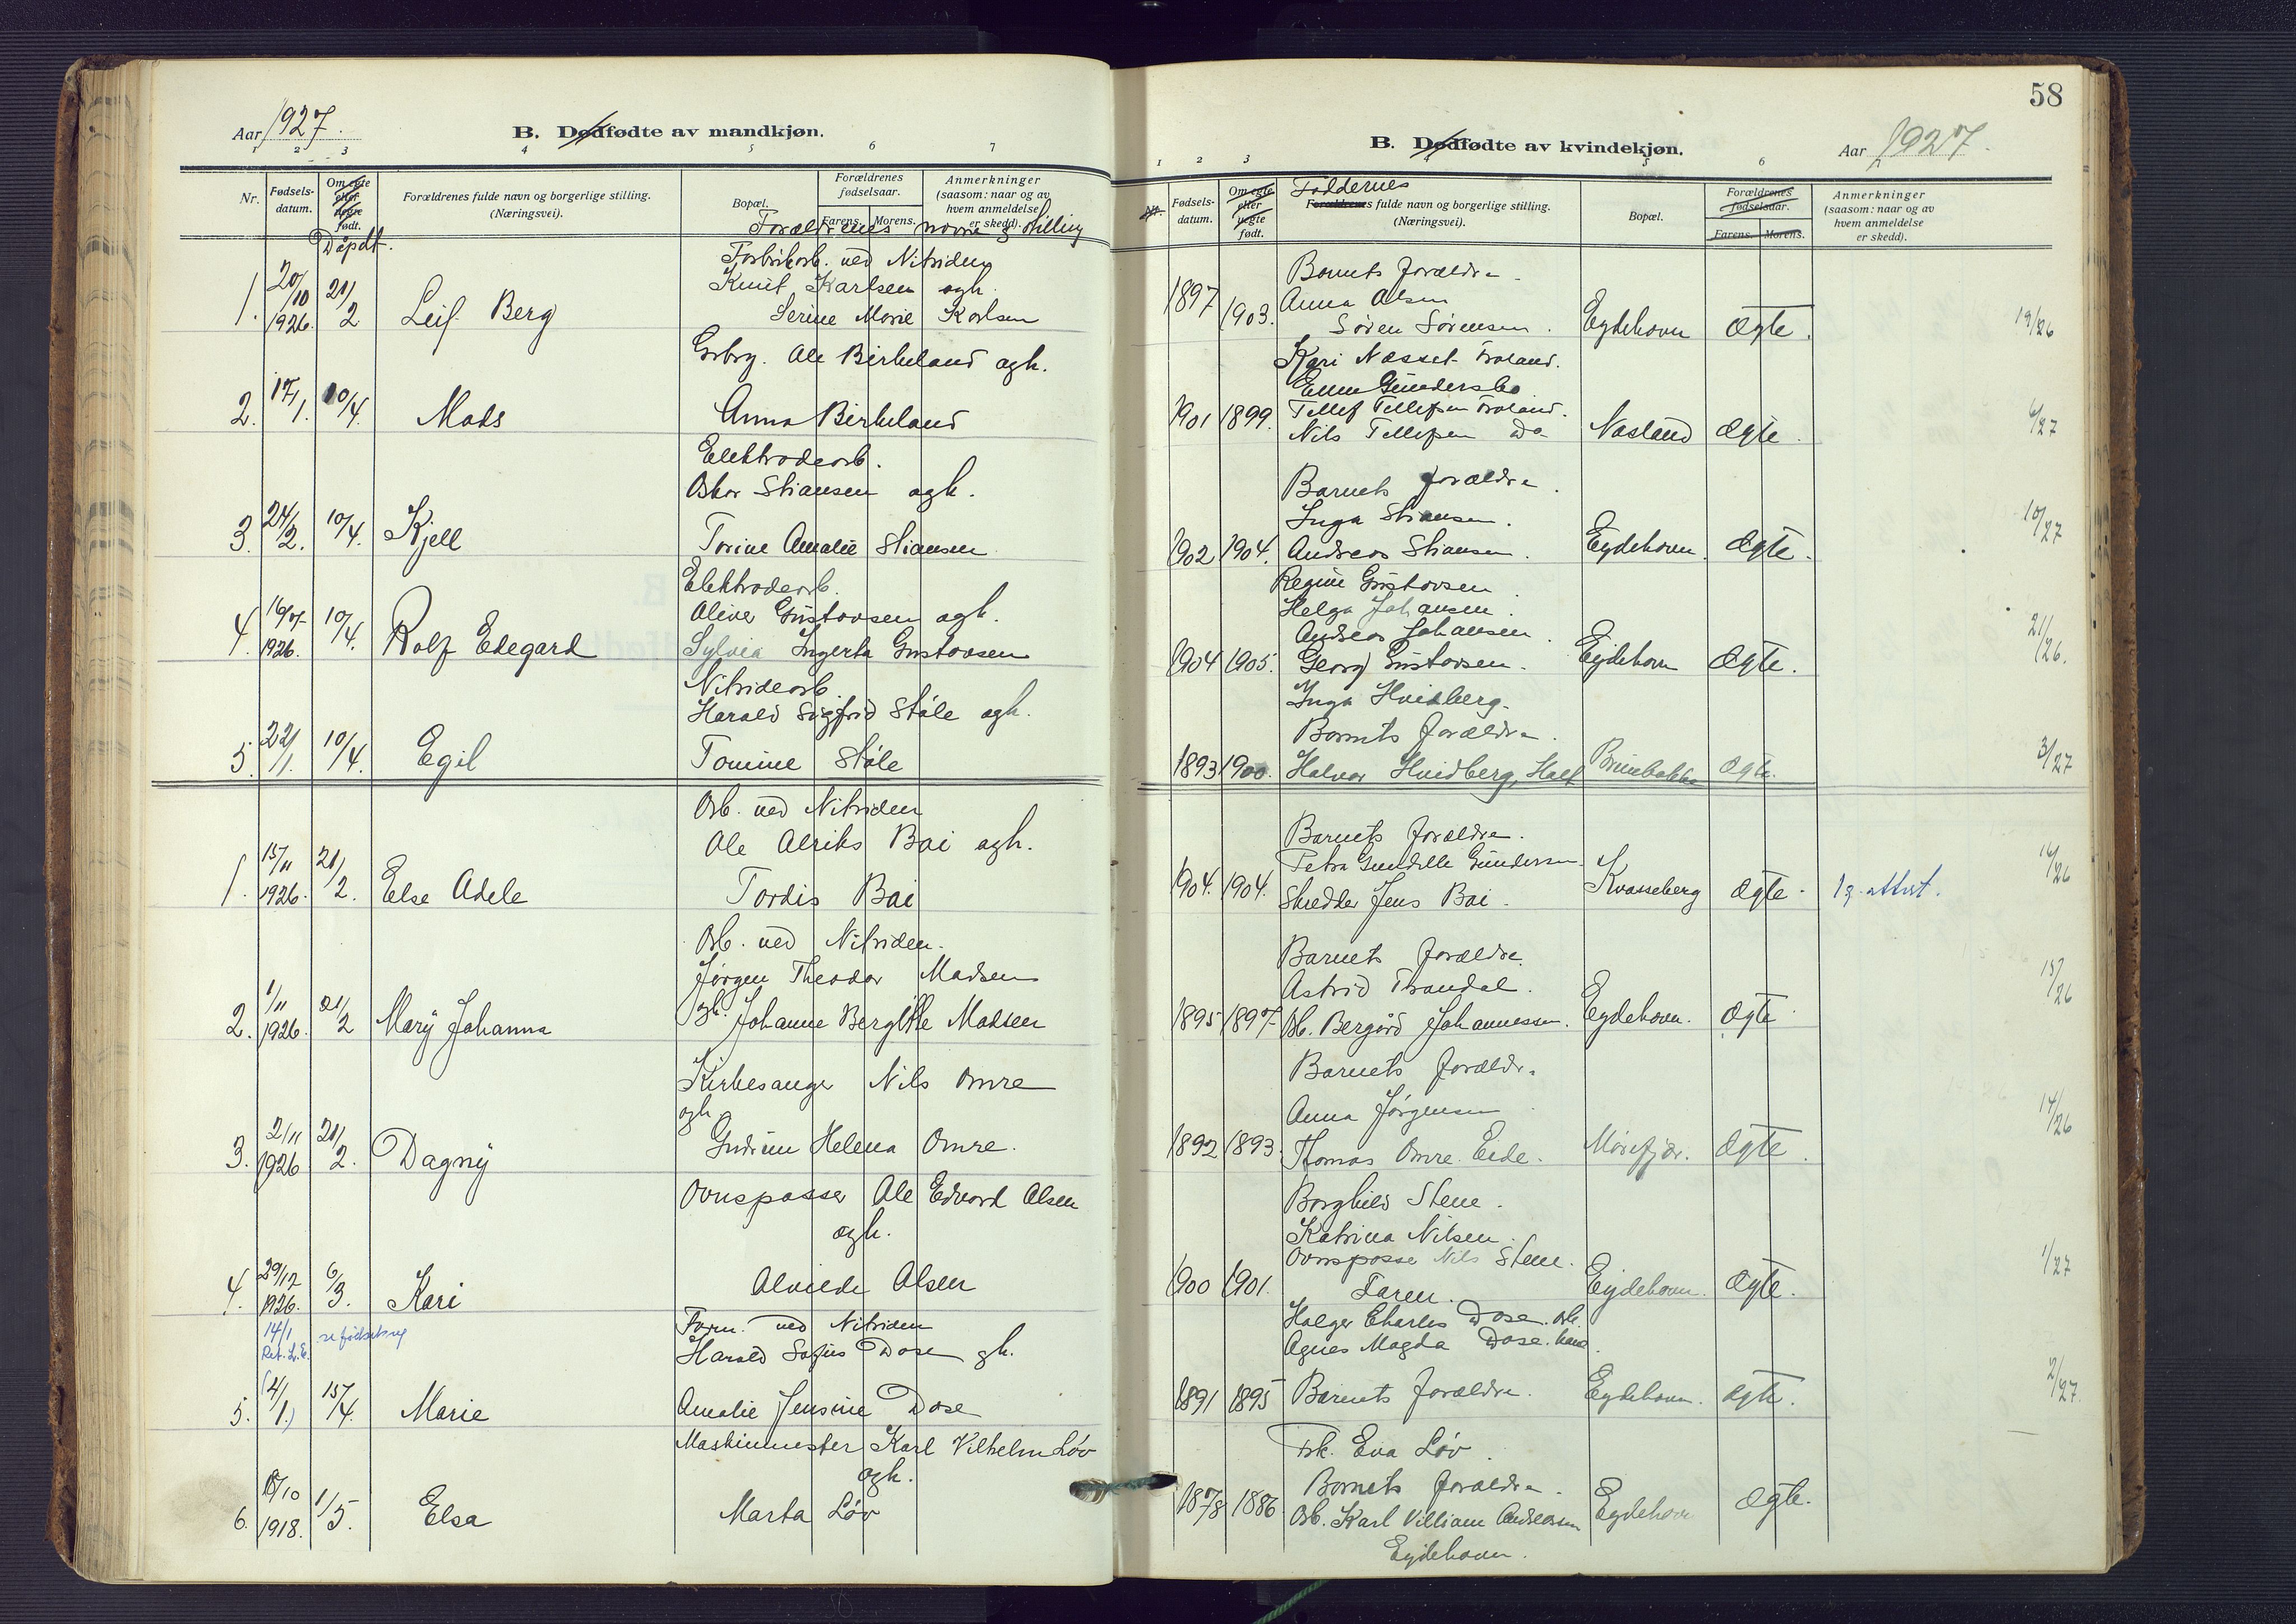 Aar 1927.
B. Dødfødte av mandkjøn.
1 2 3 4 5 6 7
Nr.
Fødsels-
datum.
Om egte
eller
uegte
født.
Døpdt.
Forældrenes fulde navn og borgerlige stilling.
(Næringsvei).
Bopæl.
Forældrenes
fødselsaar.
Farens. Morens.
Anmerkninger
(saasom: naar og av
hvem anmeldelse
er skedd).
Forældrenes navne & stilling
Fabrikarb. ved Nitriden
Knut Karlsen ogh.
1. 20/10 1926. 21/2 Leif Berg
Serine Marie Karlsen
Ole Birkeland ogh.
2. 17/1. 10/4. Mads
Anna Birkeland
Elektrodearb.
Oskar Stiansen ogh.
3. 24/2. 10/4. Kjell
Torine Amalie Stiansen
Elektrodearb.
Oliver Gustavsen ogh.
4. 16/7 1926. 10/4. Rolf Edegard
Sylvia Ingerta Gustavsen
Nitridearb.
Harald Sigfrid Ståle ogh.
5. 22/1. 10/4. Egil
Tomine Ståle
Arb. ved Nitriden
Ole Alriks Boi ogh.
1. 15/11 1926. 21/2. Else Adele
Tordis Boi
Arb. ved Nitriden.
Jørgen Theodor Madsen
2. 1/11 1926. 21/2 Mary Johanna
ogh. Johanne Bergitte Madsen
Kirkesanger Nils Omre
ogh.
3. 2/11 1926 21/2. Dagny
Gudrun Helena Omre.
Ovnspasser Ole Edvard Olsen
ogh.
4. 29/12 1926. 6/3. Kari
Alvilde Olsen
14/1 se fødselsreg
Ret. L.E.
Form. ved Nitriden
Harald Sofus Dose gh.
5. (4/1.) 15/4. Marie
Amalie Jensine Dose
Maskinmester Karl Vilhelm Løv
ogh.
6. 18/10 1918. 1/5. Elsa
Marta Løv
58
B. Dødfødte av kvindekjøn.
Aar 1927.
1 2 3 5 6
Nr.
Fødsels-
datum.
Om egte
eller
uegte
født.
Faddernes
Forældrenes fulde navn og borgerlige stilling.
(Næringsvei).
Bopæl.
Forældrenes
fødselsaar.
Farens. Morens.
Anmerkninger
(saasom: naar og av
hvem anmeldelse
er skedd).
Barnets forældre.
Anna Olsen
1897 1903. Søren Sørensen. Eydehavn Ægte. 19/26
Kari Næsset Froland.
Emma Gundersbo
Tellef Tellefsen Froland.
1901 1899. Nils Tellefsen do Næsland Ægte. 6/27
Barnets forældre.
Inga Stiansen.
1902 1904. Andreas Stiansen. Eydehavn. Ægte. 10/27
Regine Gustavsen
Helga Johansen.
Andreas Johansen.
1904 1905. Georg Gustavsen. Eydehavn Ægte. 21/26.
Inga Hvidberg.
Barnets forældre.
1893 1900. Halvor Hvidberg, Ægte. 3/27
Barnets forældre.
Petra Gundersen
1904. 1904. Skredder Jens Boi. Kvasseberg Ægte. 1 g. attest. 16/26
Barnets forældre.
Astrid Trondal.
1895 1897 Arb. Bergård Johannessen. Eydehavn. Ægte 15/26
Barnets forældre.
Anna Jørgensen
1892 1893. Thomas Omre. Eide. Morefjær. Ægte. 14/26
Borghild Stene.
Katrina Nilsen.
Ovnspasser Nils Stene.
1900 1901. Eydehavn. Ægte. 1/27
Holger Charles Dose. arb.
Agnes Magda Dose.
1891 1895 Barnets forældre. Eydehavn. Ægte. 2/27.
Frk. Eva Løv.
Barnets forældre.
1878 1886 Arb. Karl Villiam Andreassen Eydehavn Ægte.
Eydehavn.